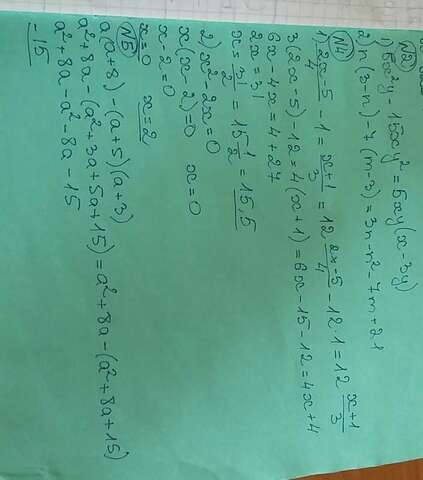 N2
1) 5x²y - 15xy² = 5xy(x - 3y)
2) n(3-n) - 7(m-3) = 3n - n² - 7m + 21
N4
1) (2x-5)/4 - 1 = (x+1)/3 = 12 (2x-5)/4 - 12·1 = 12 (x+1)/3
3(2x-5) - 12 = 4(x+1) = 6x - 15 - 12 = 4x + 4
6x - 4x = 4 + 27
2x = 31
x = 31/2 = 15 1/2 = 15,5
2) x² - 2x = 0
x(x-2) = 0 x = 0
x - 2 = 0
x = 0 x = 2
N5
a(a+8) - (a+5)(a+3)
a² + 8a - (a² + 3a + 5a + 15) = a² + 8a - (a² + 8a + 15)
a² + 8a - a² - 8a - 15
-15